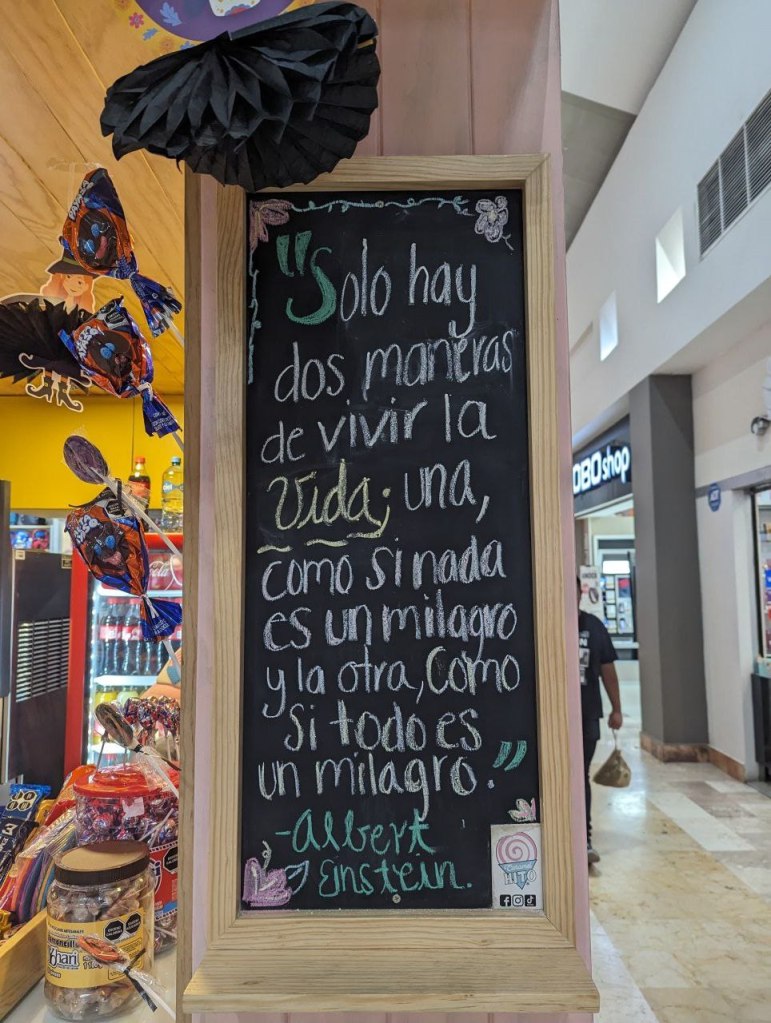 "Solo hay
dos maneras
de vivir la
Vida; una,
como si nada
es un milagro
y la otra, Como
si todo es
un milagro."
-Albert
Einstein.
HITO
OBO shop